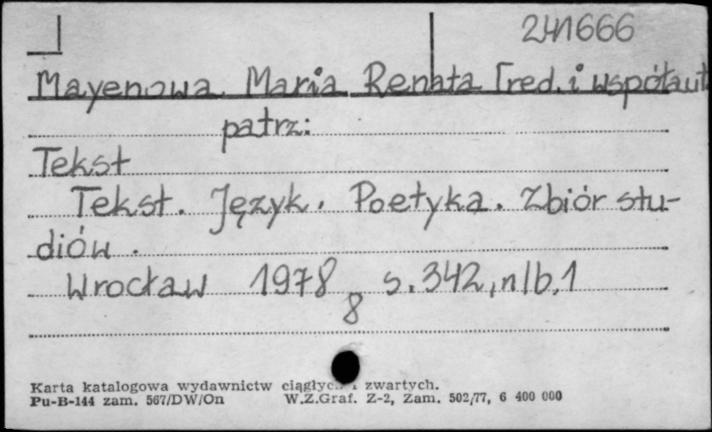 241666
Mayenowa Maria Renata [red. i współaut
patrz:
Tekst
Tekst. Język. Poetyka. Zbiór stu-
diów.
Wrocław 1978 s. 342, nlb. 1
8
Karta katalogowa wydawnictw ciągłych i zwartych.
Pu-B-144 zam. 567/DW/On W.Z.Graf. Z-2, Zam. 502/77, 6 400 000